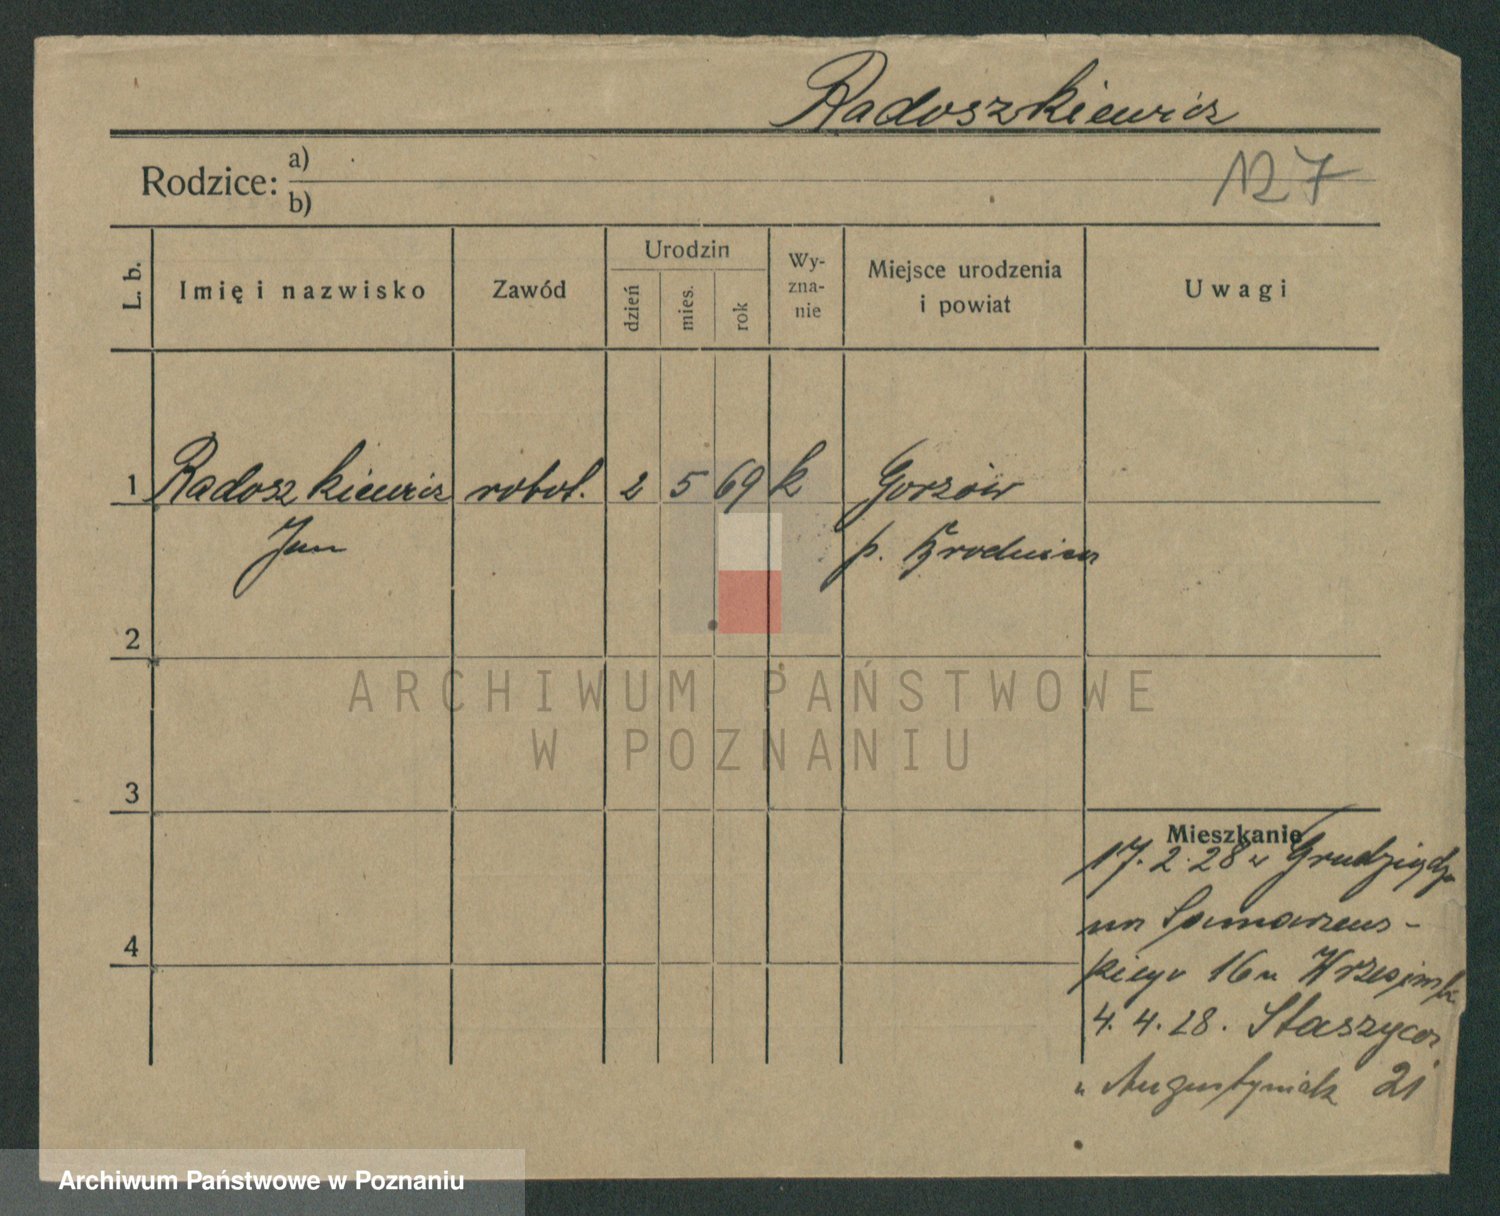 Radoszkiewicz
Rodzice: a)
b)
127
L. b.
Imię i nazwisko
Zawód
Urodzin
dzień
mies.
rok
Wy-
zna-
nie
Miejsce urodzenia
i powiat
Uwagi
1 Radoszkiewicz robot. 2 5 69 k Gorzów
Jan p. Brodnica
2
3
4
ARCHIWUM PAŃSTWOWE
W POZNANIU
Mieszkanie
17. 2. 28 z Grudziądza
na
kiego 16 u
4. 4. 28. Staszyca
u Augustyniak 21
Archiwum Państwowe w Poznaniu